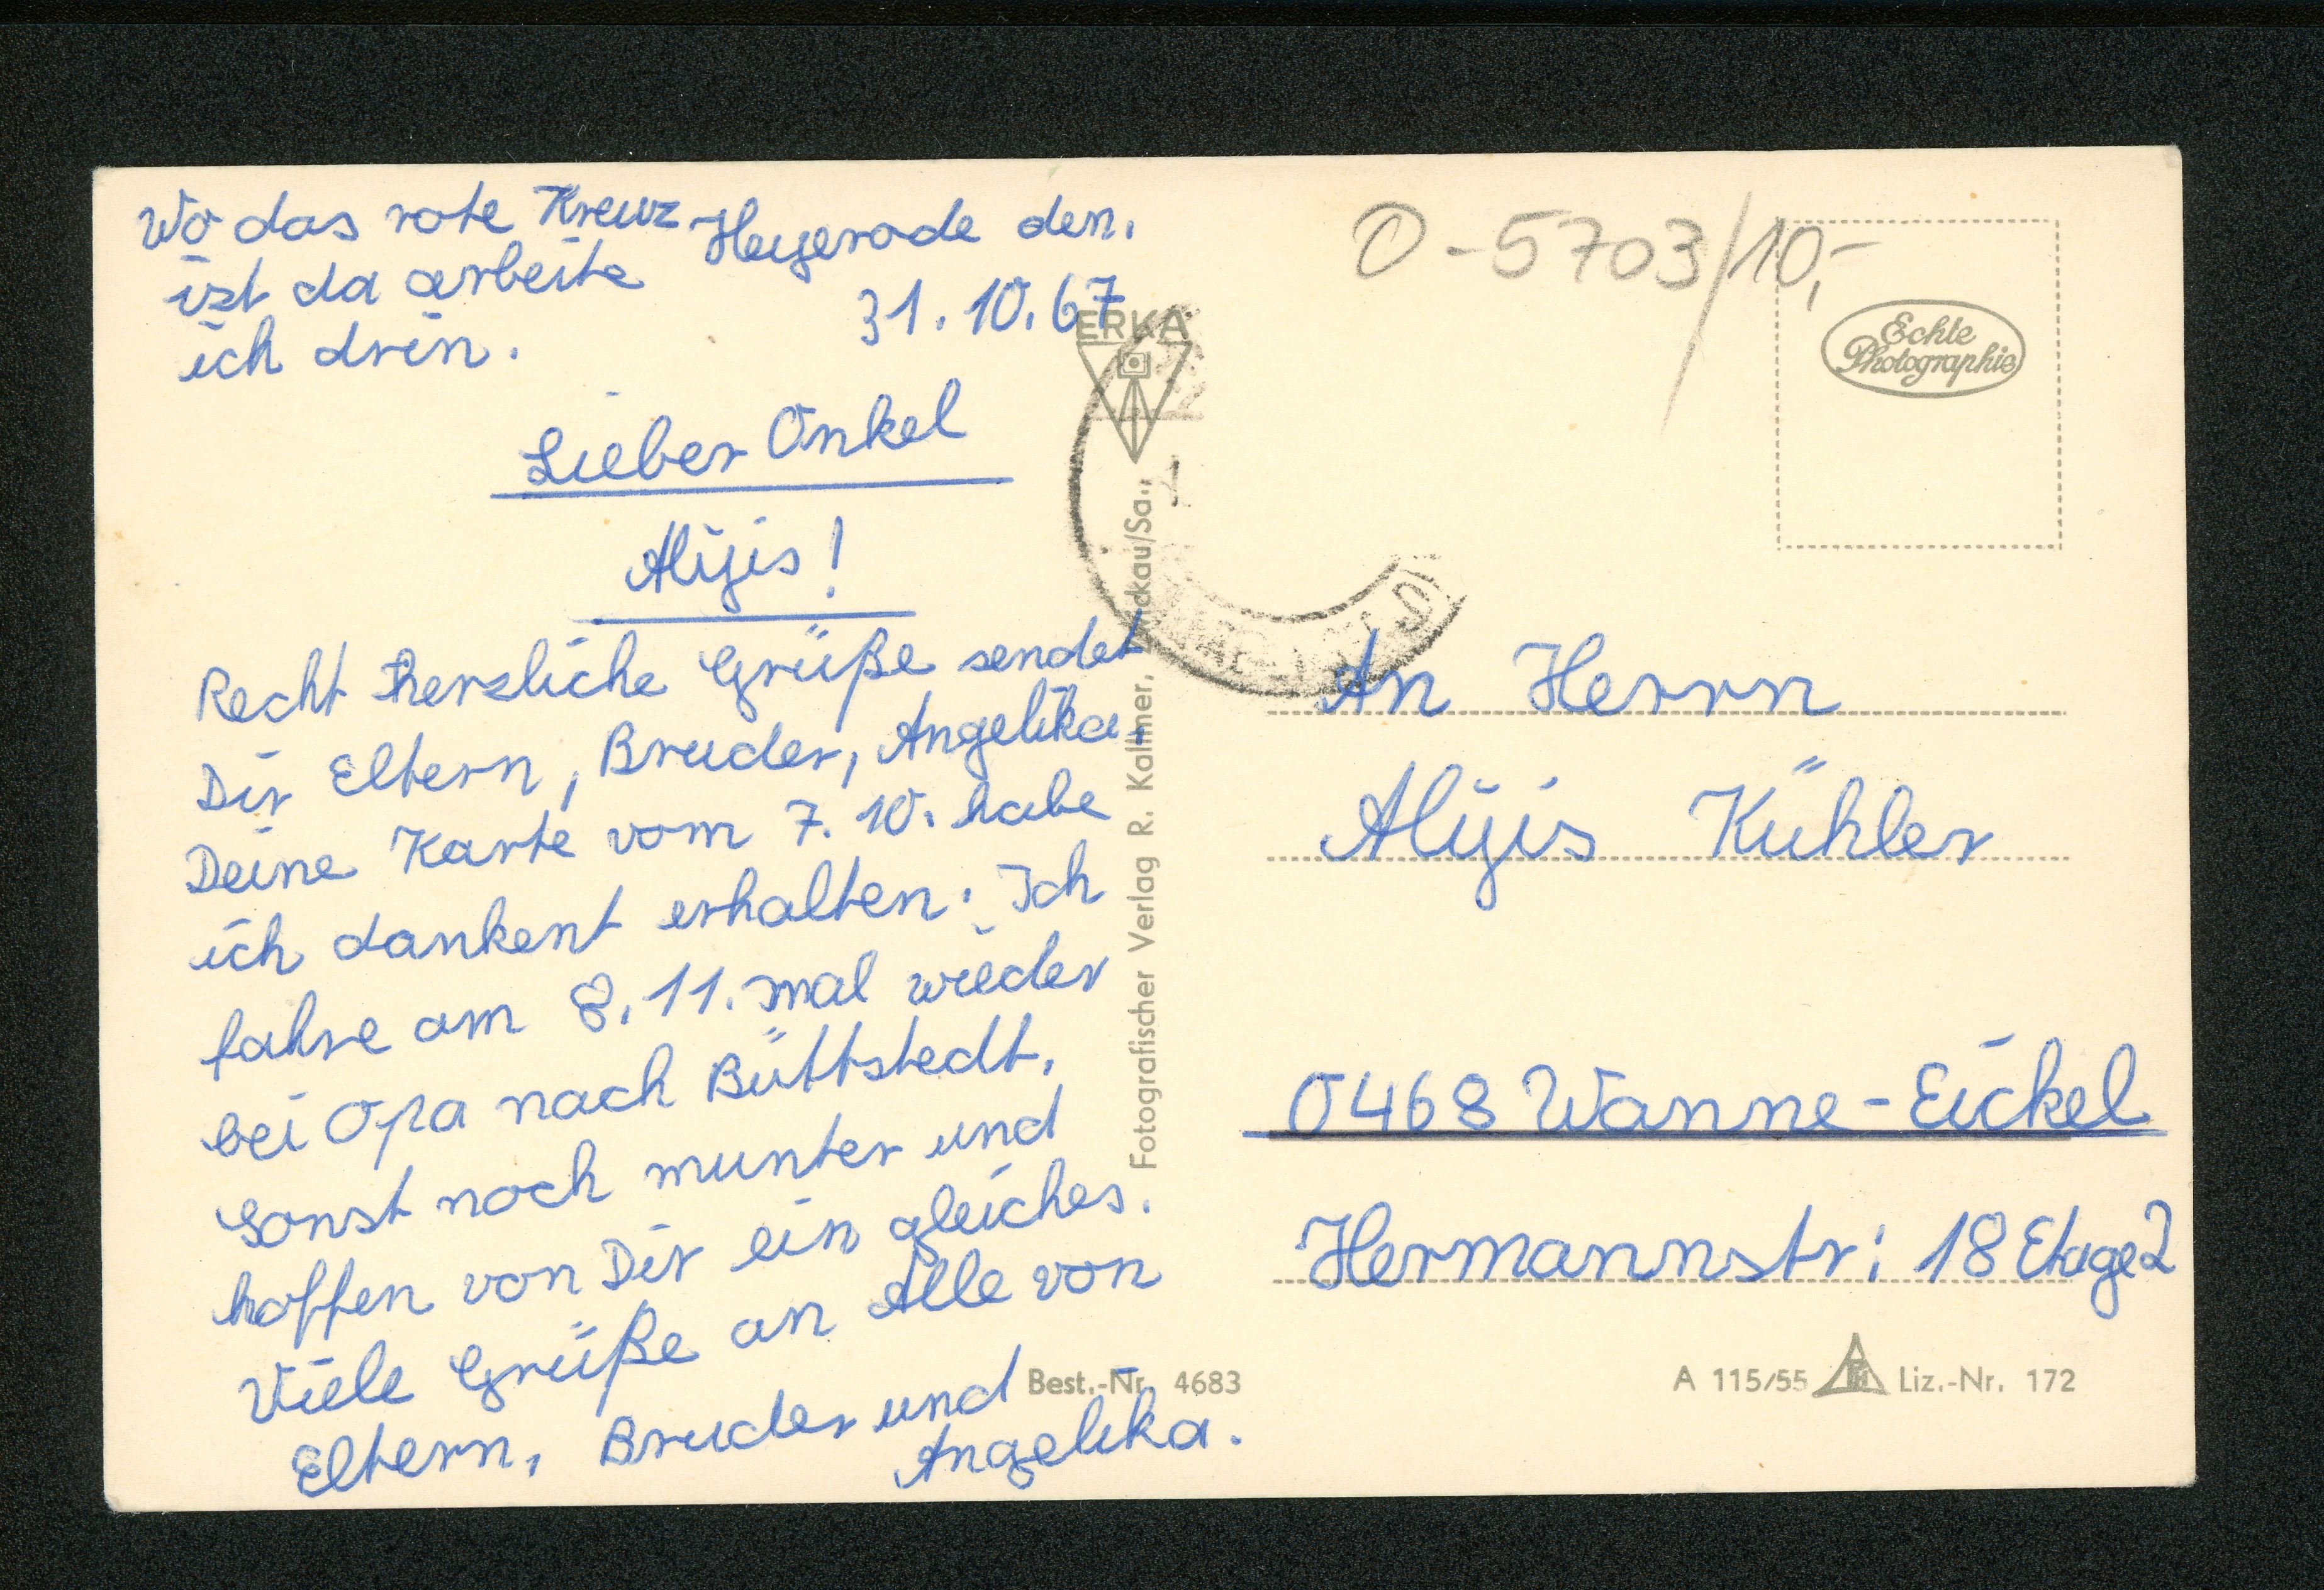 Wo das rote Kreuz
ist da arbeite
ich drin.
Heyerode den.
31.10.67
Lieber Onkel
Alijis!
Recht herzliche Grüße sendet
Dir Eltern, Bruder, Angelika.
Deine Karte vom 7. 10. habe
ich dankent erhalten. Ich
fahre am 8. 11. mal wieder
bei Opa nach Büttstedt.
Sonst noch munter und
hoffen von Dir ein gleiches.
Viele Grüße an Alle von
Eltern, Bruder und
Angelika.
ERKA
Fotografischer Verlag R. Kallmer, Zwickau/Sa.,
Best.-Nr. 4683
O-5703/10,-
Echte
Photographie
An Herrn
Alijis Kühler
0468 Wanne-Eickel
Hermannstr: 18 Etage 2
A 115/55 Liz.-Nr. 172